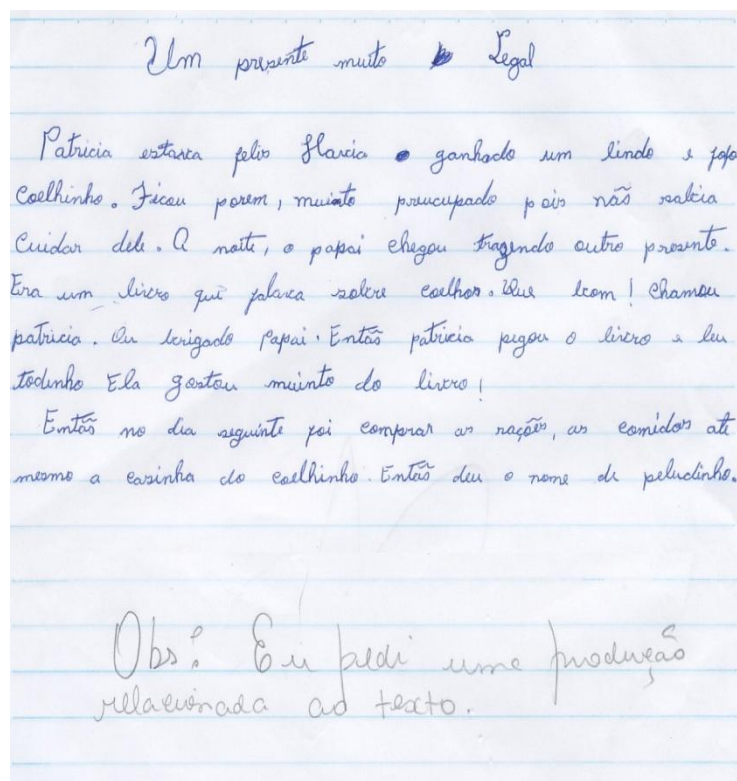 Um presente muito Legal
Patricia estava felis Havia ganhado um lindo e fofo
Coelhinho. Ficou porem, muinto preucupado pois não sabia
Cuidar dele. A noite, o papai chegou tragendo outro presente.
Era um livro qui falava sobre coelhos. Que bom! chamou
patricia. Ou brigado Papai. Então patricia pegou o livro e leu
todinho Ela gostou muinto do livro!
Então no dia seguinte foi comprar as rações, as comidas até
mesmo a casinha do coelhinho. Então deu o nome de peludinho.
Obs: Eu pedi uma produção
relacionada ao texto.